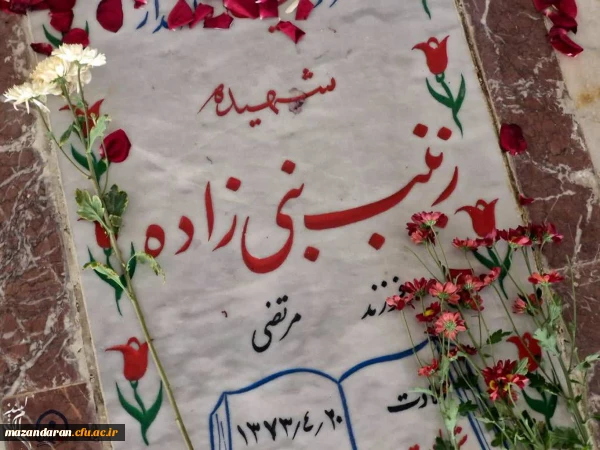 شهیده
زینب نبی زاده
فرزند مرتضی
۱۳۷۳/۴/۲۰
mazandaran.cfu.ac.ir